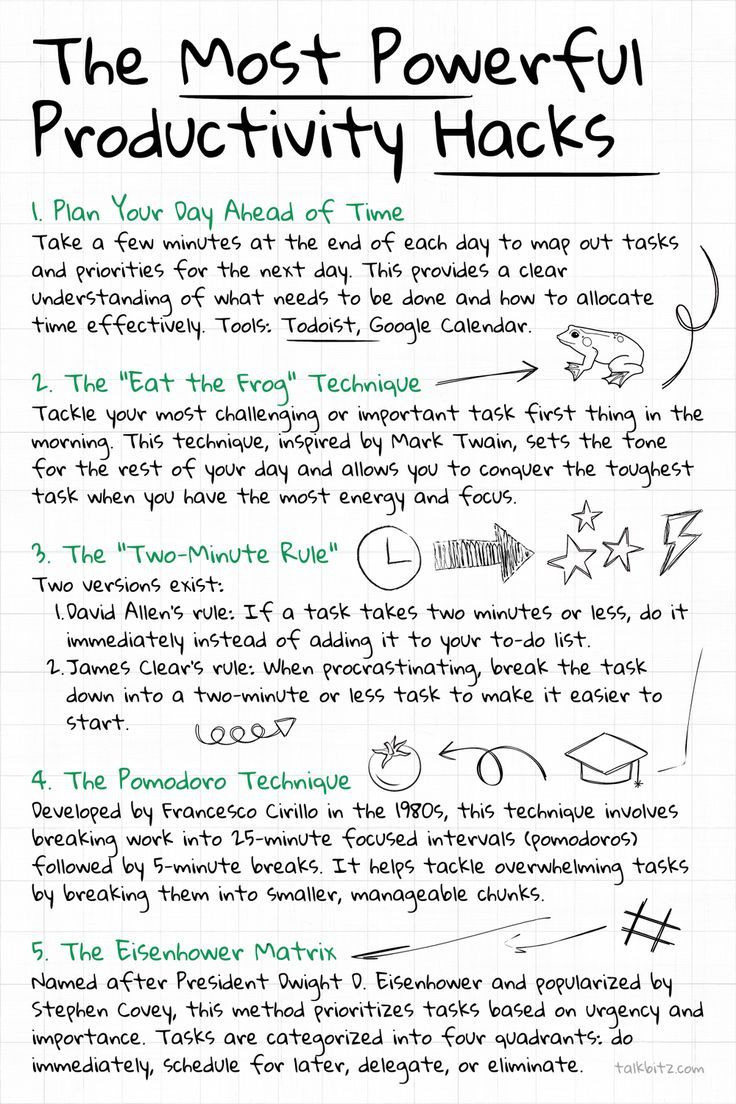 The Most Powerful
Productivity Hacks
1. Plan Your Day Ahead of Time
Take a few minutes at the end of each day to map out tasks
and priorities for the next day. This provides a clear
understanding of what needs to be done and how to allocate
time effectively. Tools: Todoist, Google Calendar.
2. The "Eat the Frog" Technique
Tackle your most challenging or important task first thing in the
morning. This technique, inspired by Mark Twain, sets the tone
for the rest of your day and allows you to conquer the toughest
task when you have the most energy and focus.
3. The "Two-Minute Rule"
Two versions exist:
1. David Allen's rule: If a task takes two minutes or less, do it
immediately instead of adding it to your to-do list.
2. James Clear's rule: When procrastinating, break the task
down into a two-minute or less task to make it easier to
start.
4. The Pomodoro Technique
Developed by Francesco Cirillo in the 1980s, this technique involves
breaking work into 25-minute focused intervals (pomodoros)
followed by 5-minute breaks. It helps tackle overwhelming tasks
by breaking them into smaller, manageable chunks.
5. The Eisenhower Matrix
Named after President Dwight D. Eisenhower and popularized by
Stephen Covey, this method prioritizes tasks based on urgency and
importance. Tasks are categorized into four quadrants: do
immediately, schedule for later, delegate, or eliminate.
talkbitz.com